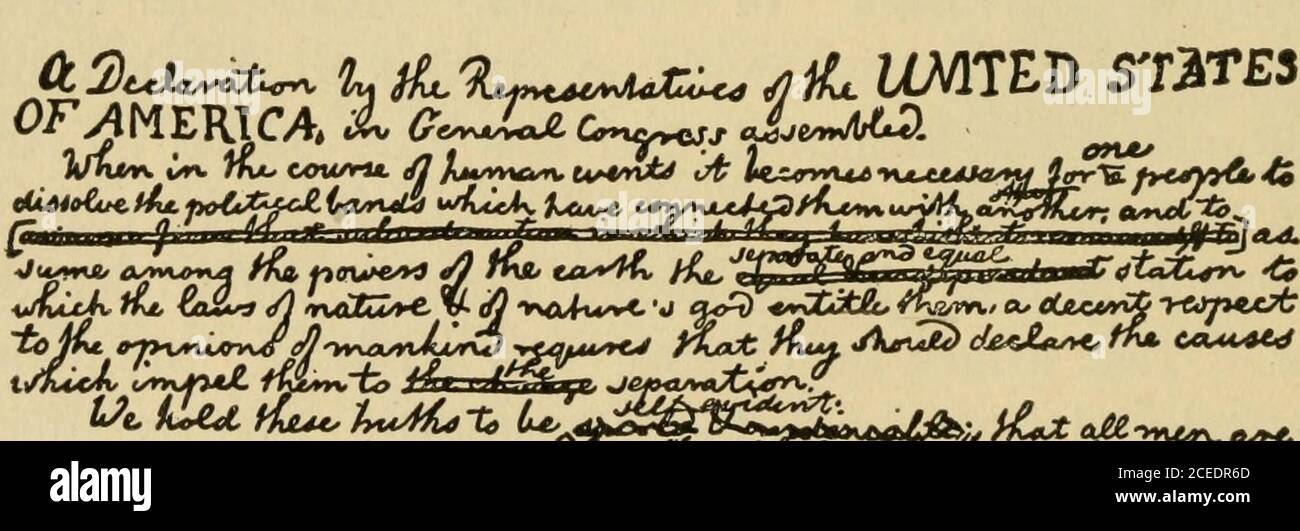 a Declaration by the Representatives of the UNITED STATES
OF AMERICA, in General Congress assembled.
When in the course of human events it becomes necessary for one a people to
dissolve the political bands which have connected them with another, and to
as-
sume among the powers of the earth the separate and equal station to
which the laws of nature & of nature's god entitle them, a decent respect
to the opinions of mankind requires that they should declare the causes
which impel them to the change the separation.
We hold these truths to be self-evident: that all men are
alamy
Image ID: 2CEDR6D
www.alamy.com